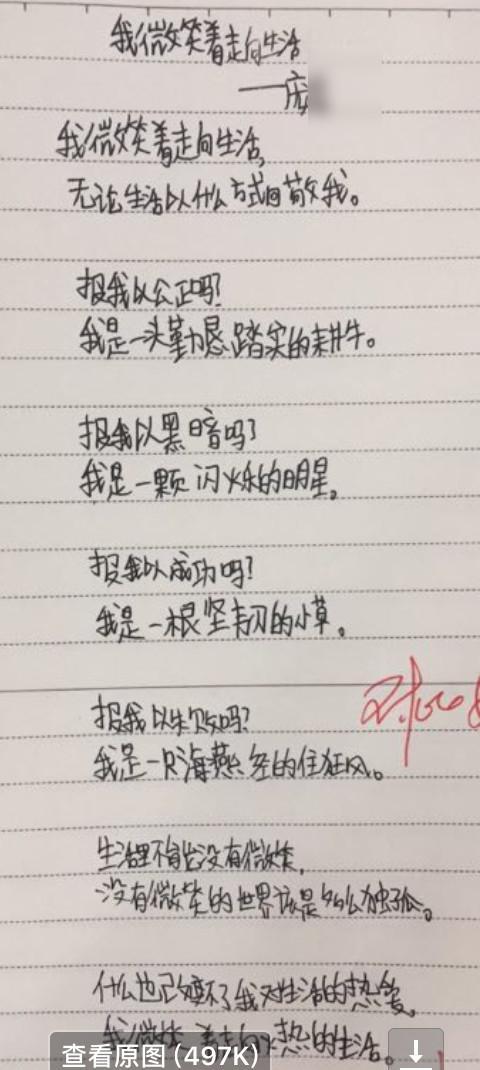 我微笑着走向生活
——庞
我微笑着走向生活,
无论生活以什么方式回敬我。
报我以公正吗?
我是一头勤恳踏实的耕牛。
报我以黑暗吗?
我是一颗闪烁的明星。
报我以成功吗?
我是一根坚韧的小草。
报我以失败吗?
我是一只海燕经的住狂风。
生活里不能没有微笑,
没有微笑的世界该是多么独孤。
什么也改变不了我对生活的热爱,
我微笑着走向火热的生活。
查看原图 (497K)